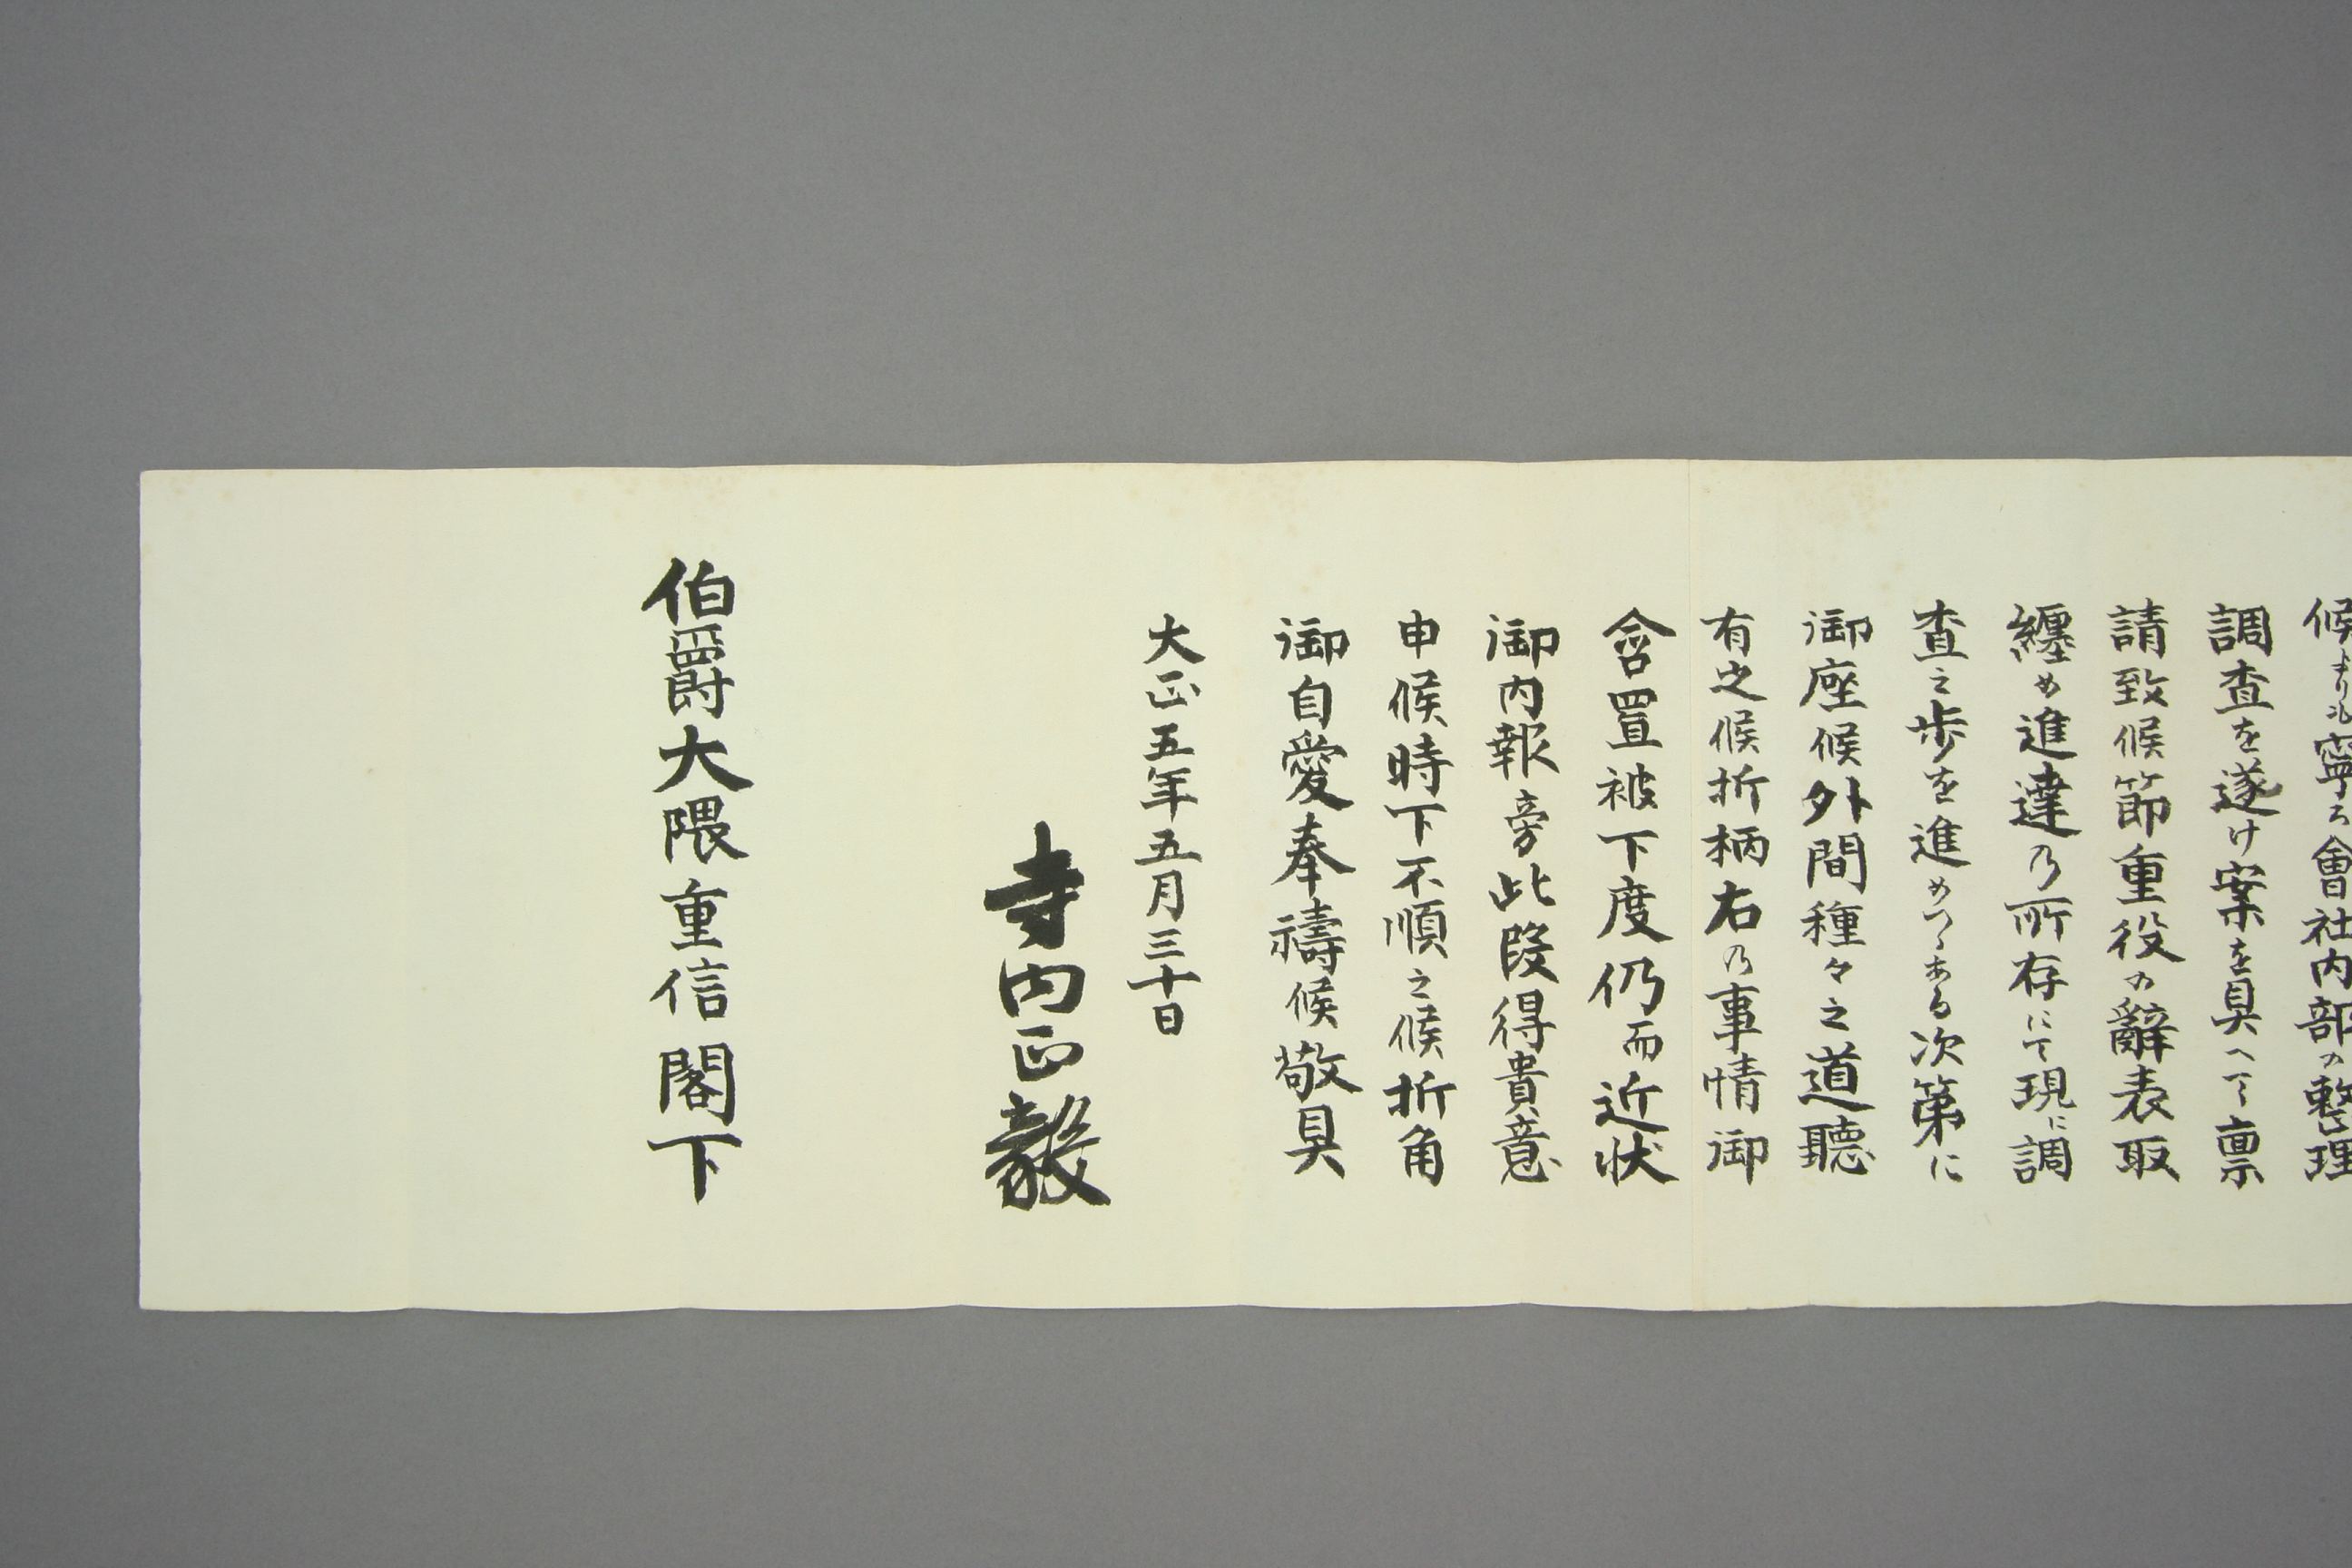 候よりも寧ろ會社内部の整理
調査を遂け案を具へて稟
請致候節重役の辭表取
纏め進達の所存にて現に調
査之歩を進めつゝある次第に
御座候外間種々之道聽
有之候折柄右の事情御
含置被下度仍而近状
御内報旁此段得貴意
申候時下不順之候折角
御自愛奉禱候敬具
大正五年五月三十日
寺内正毅
伯爵大隈重信閣下